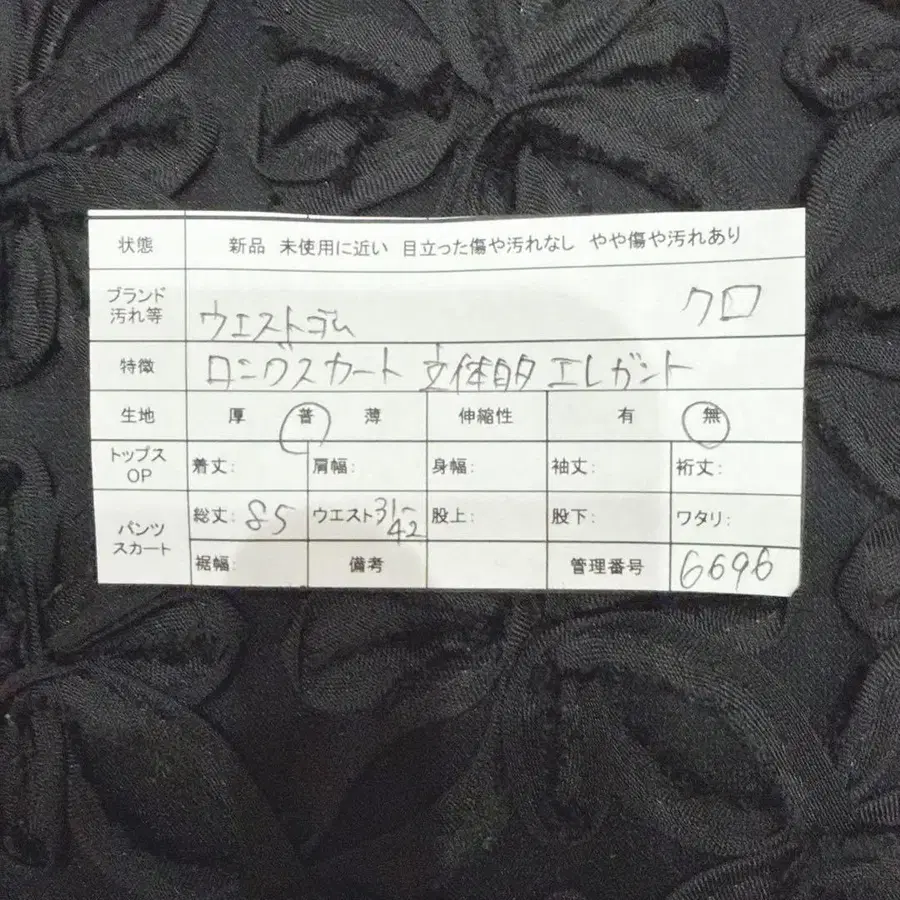 状態 新品 未使用に近い 目立った傷や汚れなし やや傷や汚れあり
ブランド
汚れ等 ウエストゴム クロ
特徴 ロングスカート 立体的 エレガント
生地 厚 普 薄 伸縮性 有 無
トップス
OP 着丈: 肩幅: 身幅: 袖丈: 裄丈:
パンツ
スカート 総丈: 85 ウエスト 31-42 股上: 股下: ワタリ:
裾幅: 備考 管理番号 6696